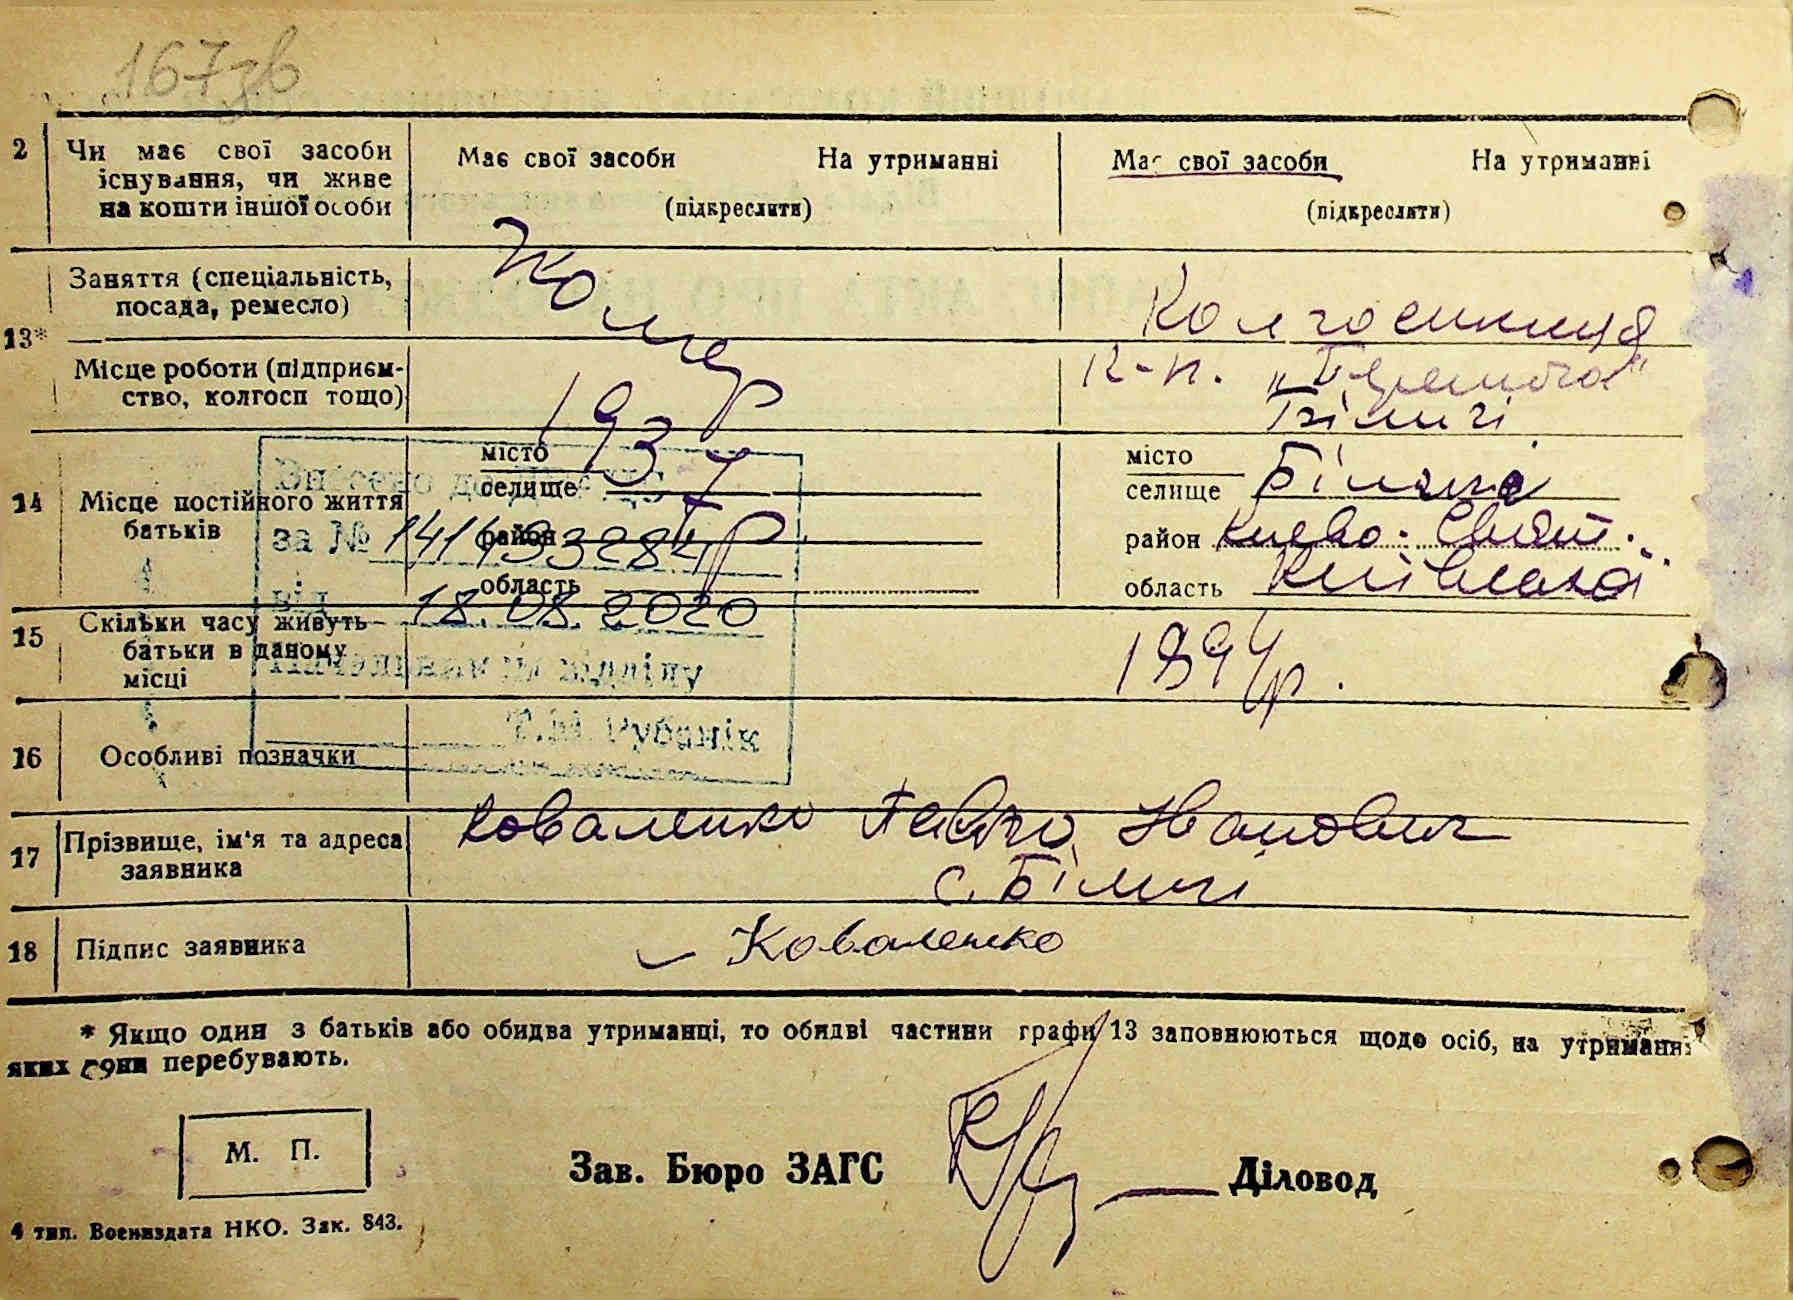 167зв
2 Чи має свої засоби існування, чи живе на кошти іншої особи
Має свої засоби На утриманні
(підкреслити)
Має свої засоби На утриманні
(підкреслити)
13*
Заняття (спеціальність, посада, ремесло)
Помер
1937 р
Колгоспниця
Місце роботи (підприєм-
ство, колгосп тощо)
к-п.
Біличі
14 Місце постійного життя
батьків
місто
селище
район
область
місто
селище Біличі
район Києво-Свят.
область Київської
Внесено до ДРАЦС
за № 14193284
від 18.08.2020
Начальник відділу
Т.М. Рубанік
15 Скільки часу живуть
батьки в даному
місці
1894 р.
16 Особливі позначки
17 Прізвище, ім'я та адреса
заявника
Коваленко Павло Іванович
с. Біличі
18 Підпис заявника
Коваленко
* Якщо один з батьків або обидва утриманці, то обидві частини графи 13 заповнюються щодо осіб, на утриманні
яких вони перебувають.
М. П.
Зав. Бюро ЗАГС
Діловод
4 тип. Воениздата НКО. Зак. 843.